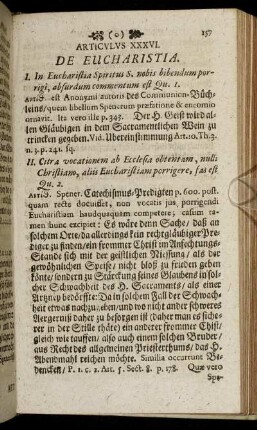 (o)
157
ARTICVLVS XXXVI.
DE EUCHARISTIA.
I. In Eucharistia Spiritus S. nobis bibendum por-
rigi, absurdum commentum est Qu. 1.
est Anonymi autoris des Communion-Büch-
leins, quem libellum Spenerum præfatione & encomio
ornavit. Ita vero ille p. 393. Der H. Geist wird al-
len Gläubigen in dem Sacramentlichen Wein zu
trincken gegeben. Vid. Ubereinstimmung Art. 10. Th. 3.
n. 3. p. 241. sq.
II. Citra vocationem ab Ecclesia obtentam, nulli
Christiam, aliis Eucharistiam porrigere, fas est
Qu. 2.
Spener. Catechismus-Predigten p. 600. post-
quam recte docuisset, non vocatis jus, porrigendi
Eucharistiam haudquaquam competere; casum ta-
men hunc excipit: Es wäre dann Sache, daß an
solchem Orte, da allerdings kein rechtgläubiger Pre-
diger zu finden, ein frommer Christ im Anfechtungs-
Stande sich mit der geistlichen Niessung, als der
gewöhnlichen Speise, nicht bloß zu frieden geben
könte, sondern zu Stärckung seines Glaubens in sol-
cher Schwachheit des H. Sacraments, als einer
Artzney bedörffte: Da in solchem Fall der Schwach-
heit etwas nachzugehen, und wo nicht ander schweres
Aergernüß daher zu besorgen ist (daher man es siche-
rer in der Stille thäte) ein anderer frommer Christ,
gleich wie tauffen, also auch einem solchen Bruder,
aus Recht des allgemeinen Priesterthums, das H.
Abendmahl reichen möchte. Similia occurrunt Be-
dencken, P. 1. c. 2. Art. 5. Sect. 8. p. 178. Quæ vero
Spe-